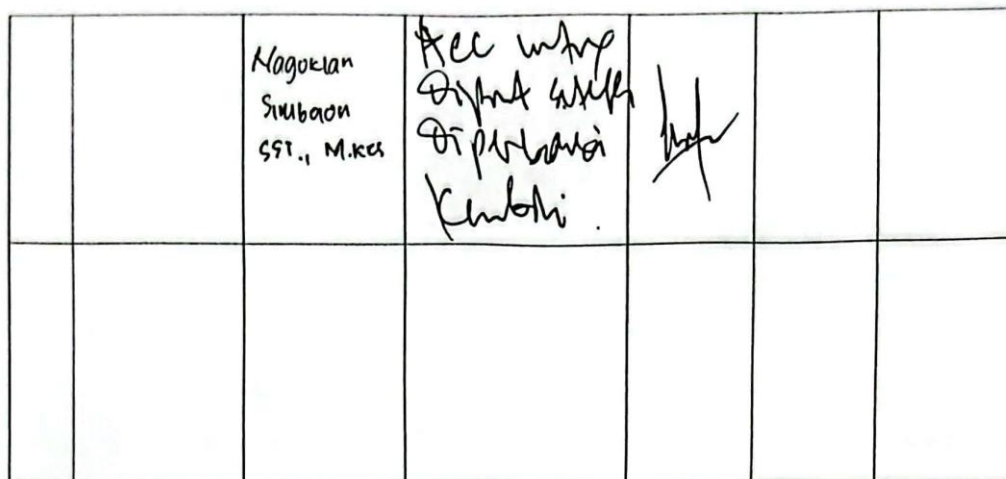 Nagoklan
Simbaon
SST., M.Kes
Acc untuk
Diprint setelah
Diperbaiki
Kembali.